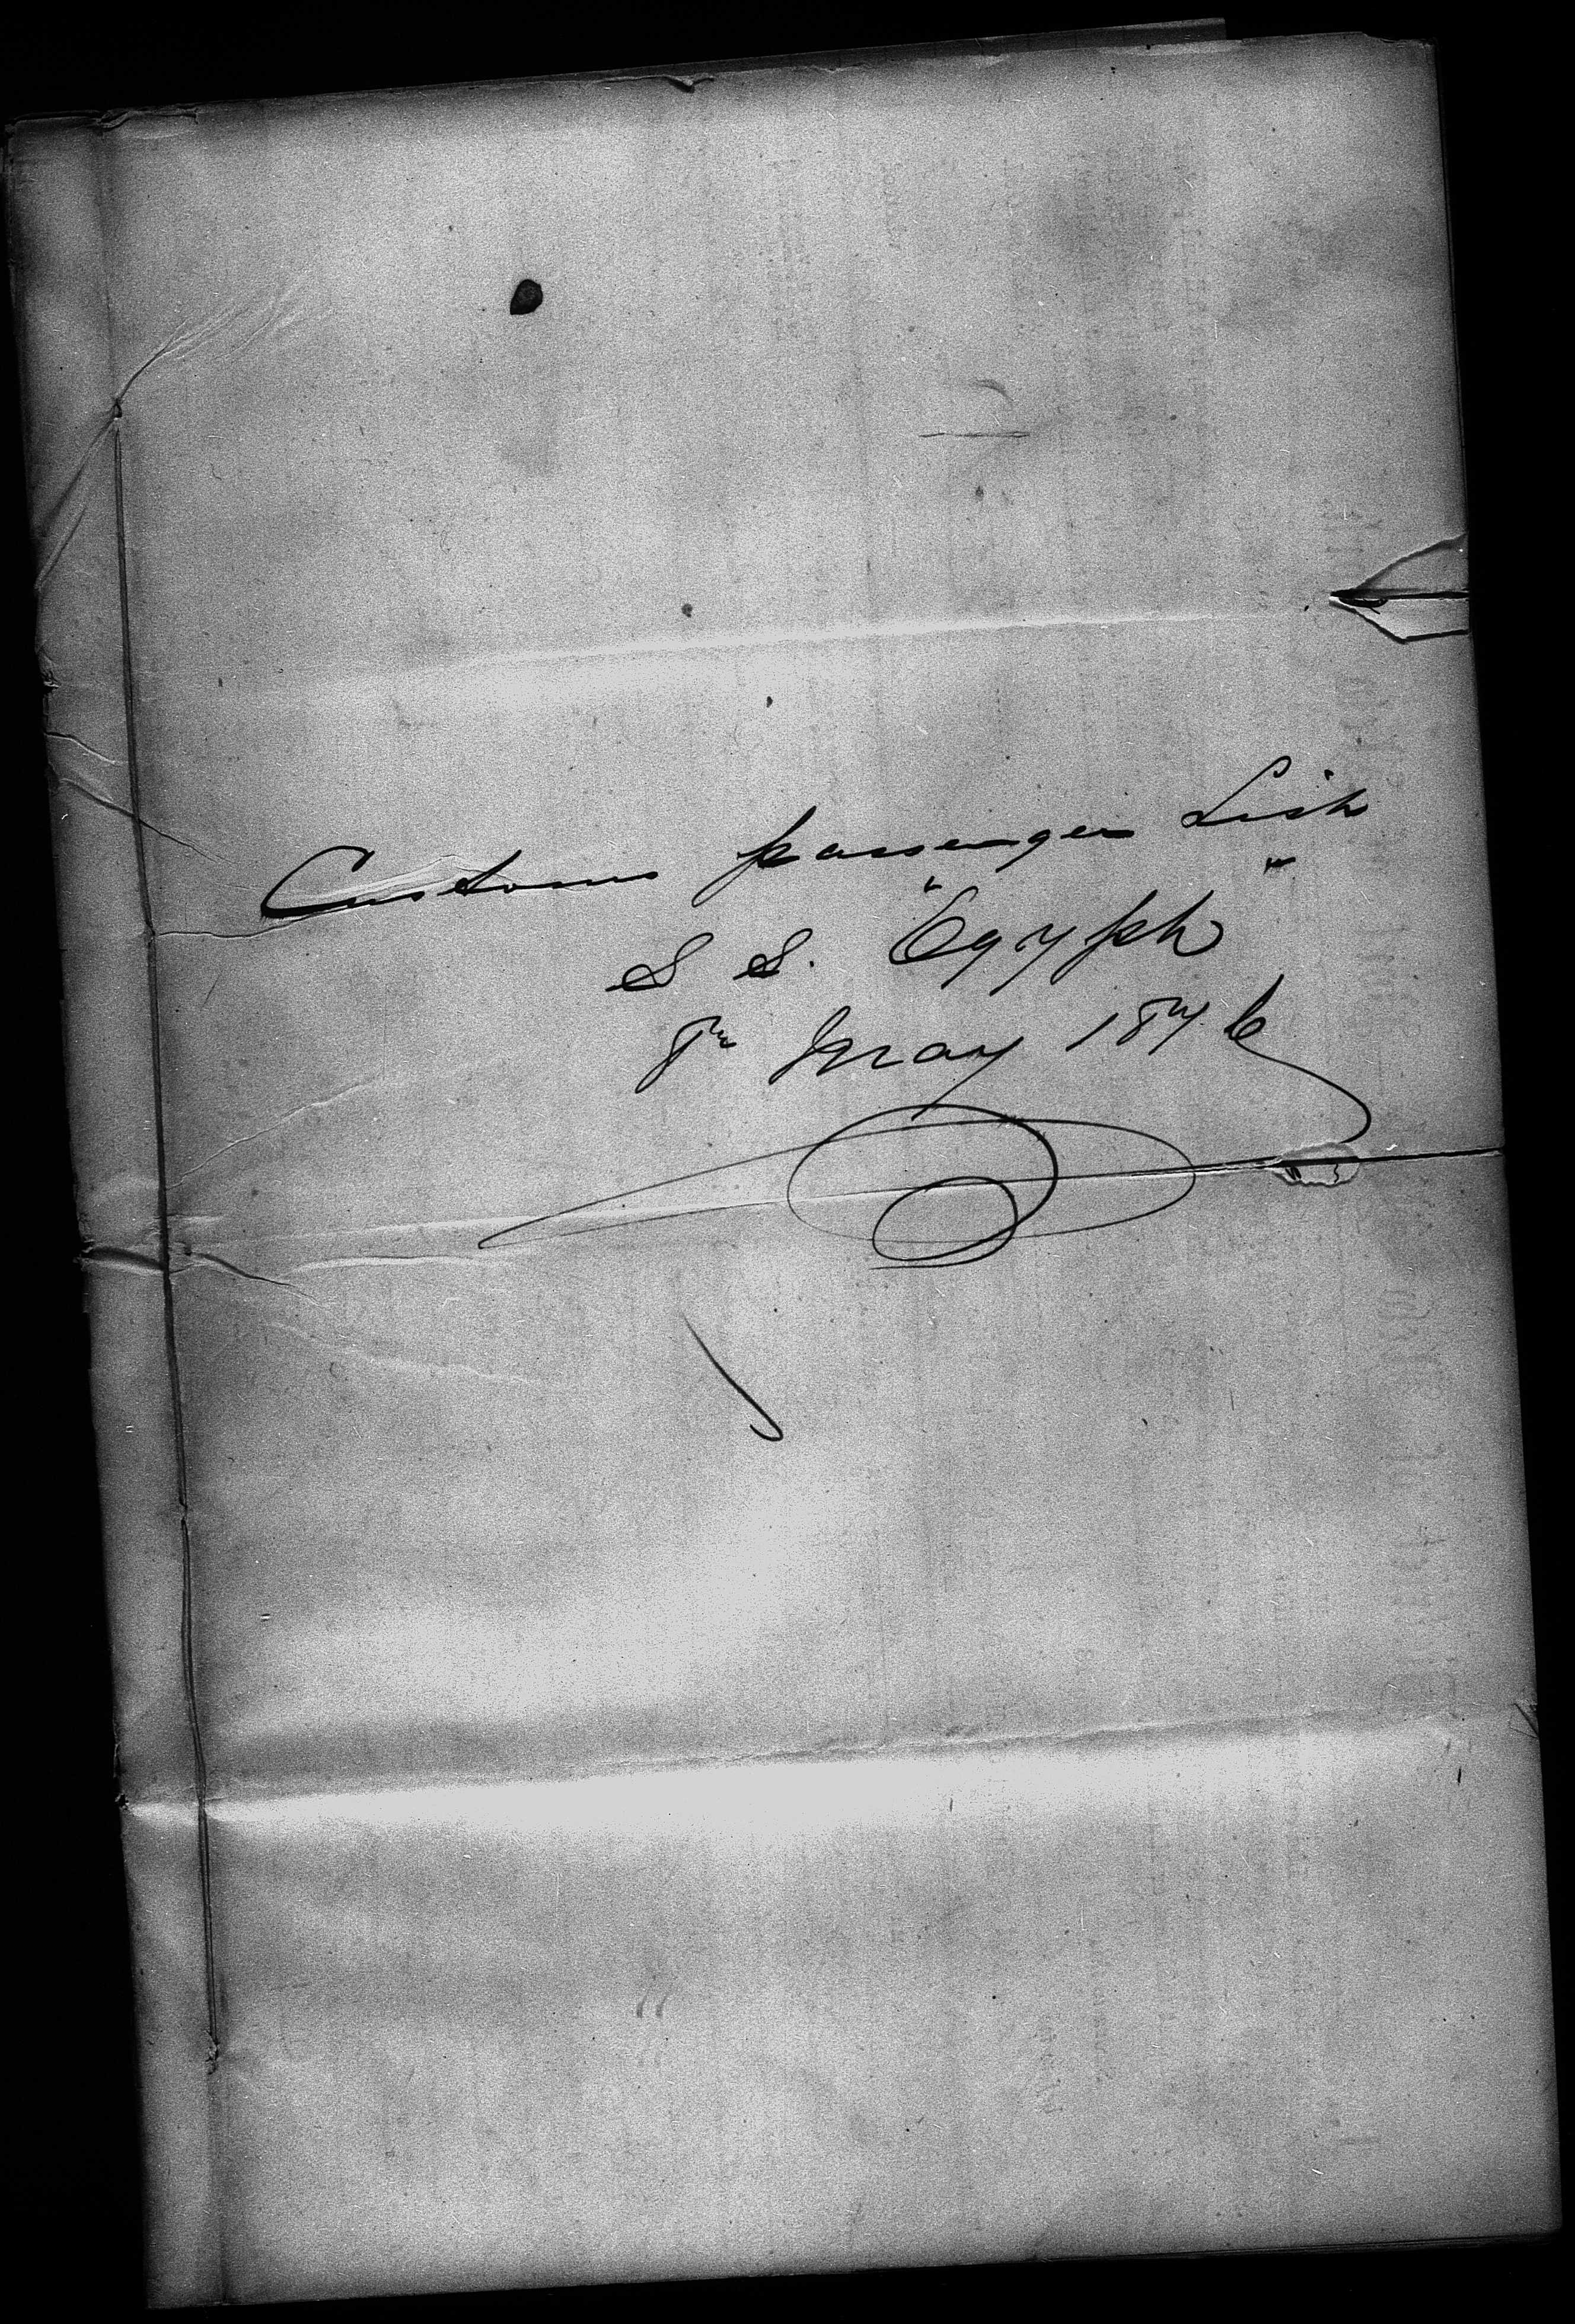 Customs passenger List
S S. "Egypt"
8th May 1876